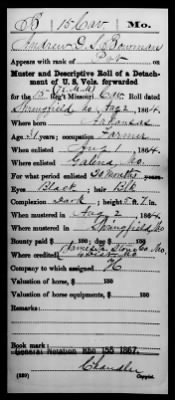 B 15 Cav Mo.
Andrew D. S. Bowman
Appears with rank of Pvt
Muster and Descriptive Roll of a Detach-
ment of U. S. Vols. forwarded
for the 15 (7 M.M.) Reg't Missouri Cav. Roll dated
Springfield Mo Aug 2, 1864.
Where born Arkansas
Age 31 years; occupation Farmer
When enlisted Aug 1, 1864.
Where enlisted Galena, Mo.
For what period enlisted 20 Months years.
Eyes Black; hair Blk
Complexion Dark; height 5 ft. 7 in.
When mustered in Aug 2, 1864.
Where mustered in Springfield Mo
Bounty paid $ 100; due $ 100
Where credited Stone Co. Mo.
Company to which assigned H
Valuation of horse, $ 100
Valuation of horse equipments, $ 100
Remarks:
Book mark:
General Notation 1867.
Chandler
(339) Copyist.